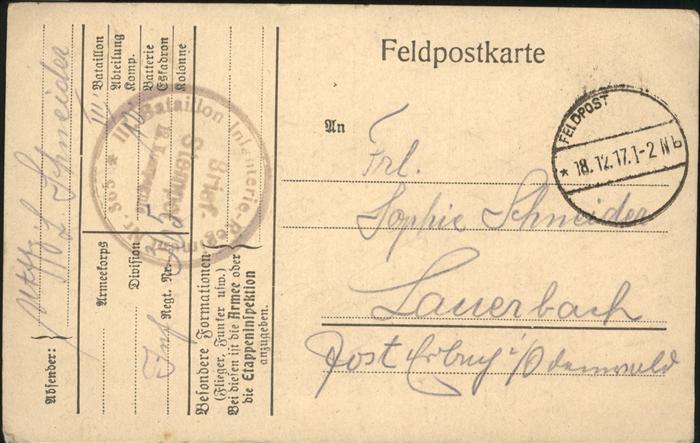 Feldpostkarte
An
Frl.
Sophie Schneider
Lauerbach
Post Erbach i/Odenwald
FELDPOST
* 18.12.17.1-2 N b
Absender:
Schneider
Armeekorps
Division
Inf Regt. Nr. 365
III Bataillon
Abteilung
Komp.
Batterie
Eskadron
Kolonne
Besondere Formationen
(Flieger, Funker usw.)
Bei diesen ist die Armee oder
die Etappeninspektion
anzugeben.
III. Bataillon Infanterie-Reg
Nr. 365 *
Brief-
Stempel